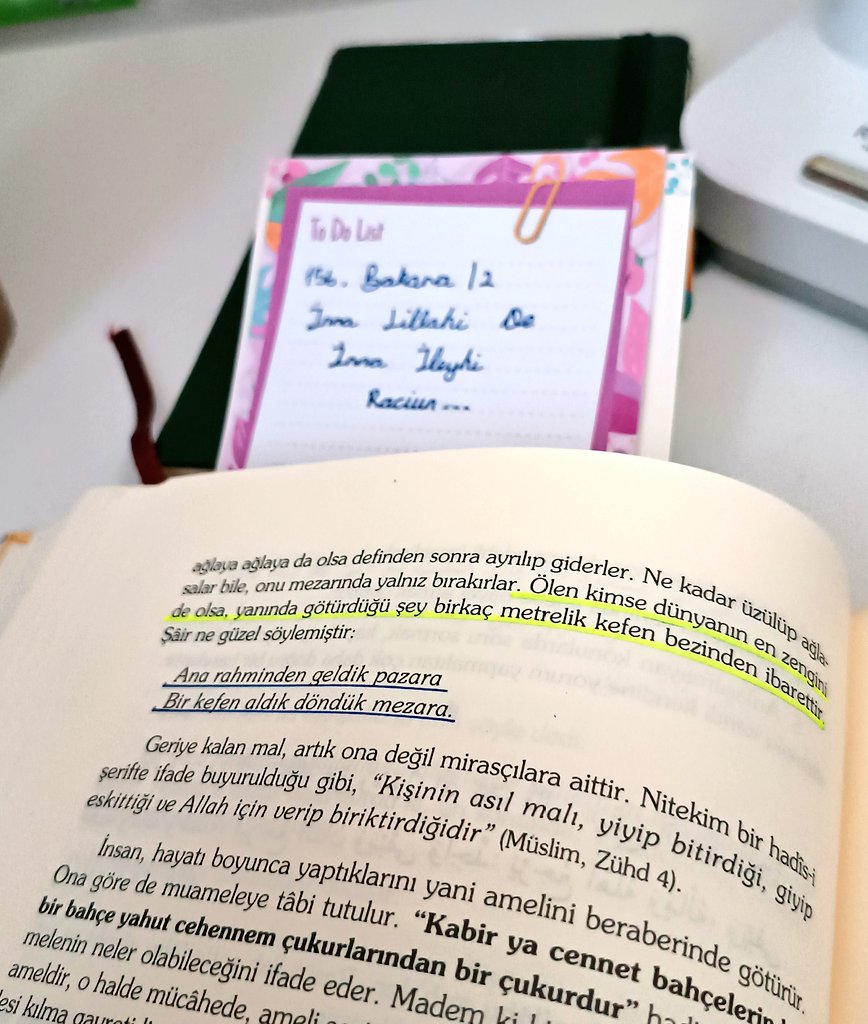 To Do List
156. Bakara /2
İnna Lillahi Ve
İnna İleyhi
Raciun...
ağlaya ağlaya da olsa definden sonra ayrılıp giderler. Ne kadar üzülüp ağla-
salar bile, onu mezarında yalnız bırakırlar. Ölen kimse dünyanın en zengini
de olsa, yanında götürdüğü şey birkaç metrelik kefen bezinden ibarettir.
Şâir ne güzel söylemiştir:
Ana rahminden geldik pazara
Bir kefen aldık döndük mezara.
Geriye kalan mal, artık ona değil mirasçılara aittir. Nitekim bir hadîs-i
şerifte ifade buyurulduğu gibi, “Kişinin asıl malı, yiyip bitirdiği, giyip
eskittiği ve Allah için verip biriktirdiğidir” (Müslim, Zühd 4).
İnsan, hayatı boyunca yaptıklarını yani amelini beraberinde götürür.
Ona göre de muameleye tâbi tutulur. “Kabir ya cennet bahçelerin
bir bahçe yahut cehennem çukurlarından bir çukurdur”
melenin neler olabileceğini ifade eder. Madem ki
ameldir, o halde mücâhede, ameli
esi kılma gayreti